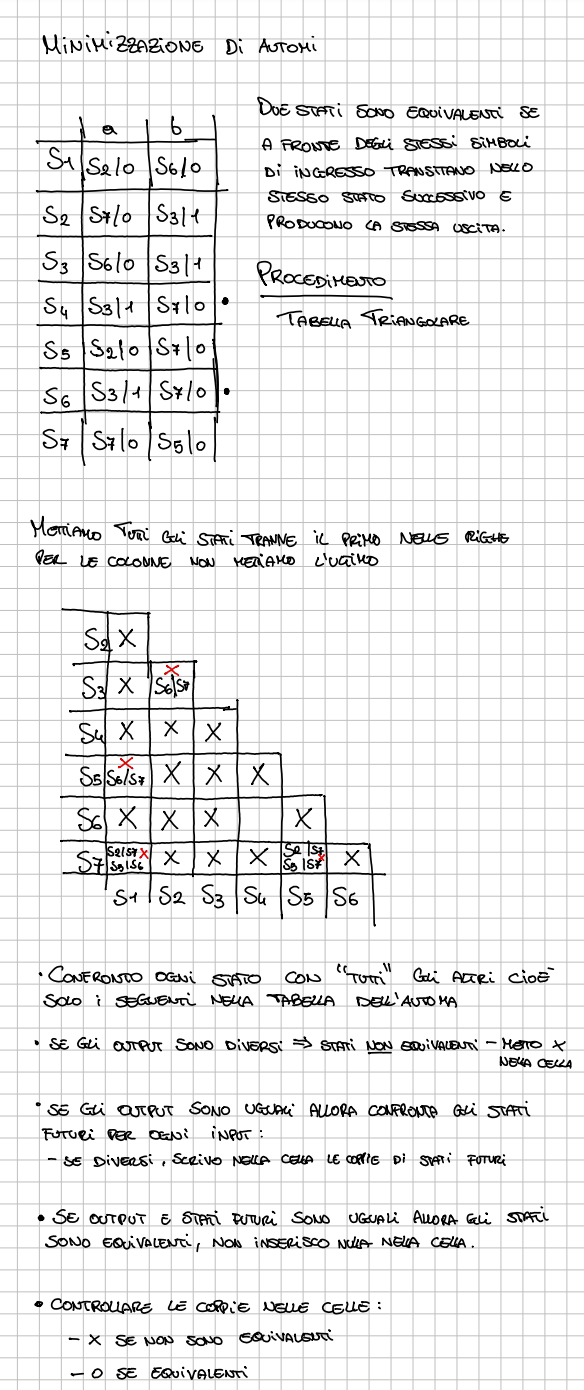 MINIMIZZAZIONE DI AUTOMI
a b
S1 S2/0 S6/0
S2 S7/0 S3/1
S3 S6/0 S3/1
S4 S3/1 S7/0 •
S5 S2/0 S7/0
S6 S3/1 S7/0 •
S7 S7/0 S5/0
DUE STATI SONO EQUIVALENTI SE
A FRONTE DEGLI STESSI SIMBOLI
DI INGRESSO TRANSITANO NELLO
STESSO STATO SUCCESSIVO E
PRODUCONO LA STESSA USCITA.
PROCEDIMENTO
TABELLA TRIANGOLARE
METTIAMO TUTTI GLI STATI TRANNE IL PRIMO NELLE RIGHE
PER LE COLONNE NON METTIAMO L'ULTIMO
S2 X
S3 X X S6/S7
S4 X X X
S5 X S6/S7 X X X
S6 X X X X
S7 S2/S7 X S5/S6 X X X S2/S7 S5/S7 X X
S1 S2 S3 S4 S5 S6
• CONFRONTO OGNI STATO CON "TUTTI" GLI ALTRI CIOÈ
SOLO I SEGUENTI NELLA TABELLA DELL'AUTOMA
• SE GLI OUTPUT SONO DIVERSI ⇒ STATI NON EQUIVALENTI - METTO X
NELLA CELLA
• SE GLI OUTPUT SONO UGUALI ALLORA CONFRONTA GLI STATI
FUTURI PER OGNI INPUT:
- SE DIVERSI, SCRIVO NELLA CELLA LE COPPIE DI STATI FUTURI
• SE OUTPUT E STATI FUTURI SONO UGUALI ALLORA GLI STATI
SONO EQUIVALENTI, NON INSERISCO NULLA NELLA CELLA.
• CONTROLLARE LE COPPIE NELLE CELLE:
- X SE NON SONO EQUIVALENTI
- O SE EQUIVALENTI